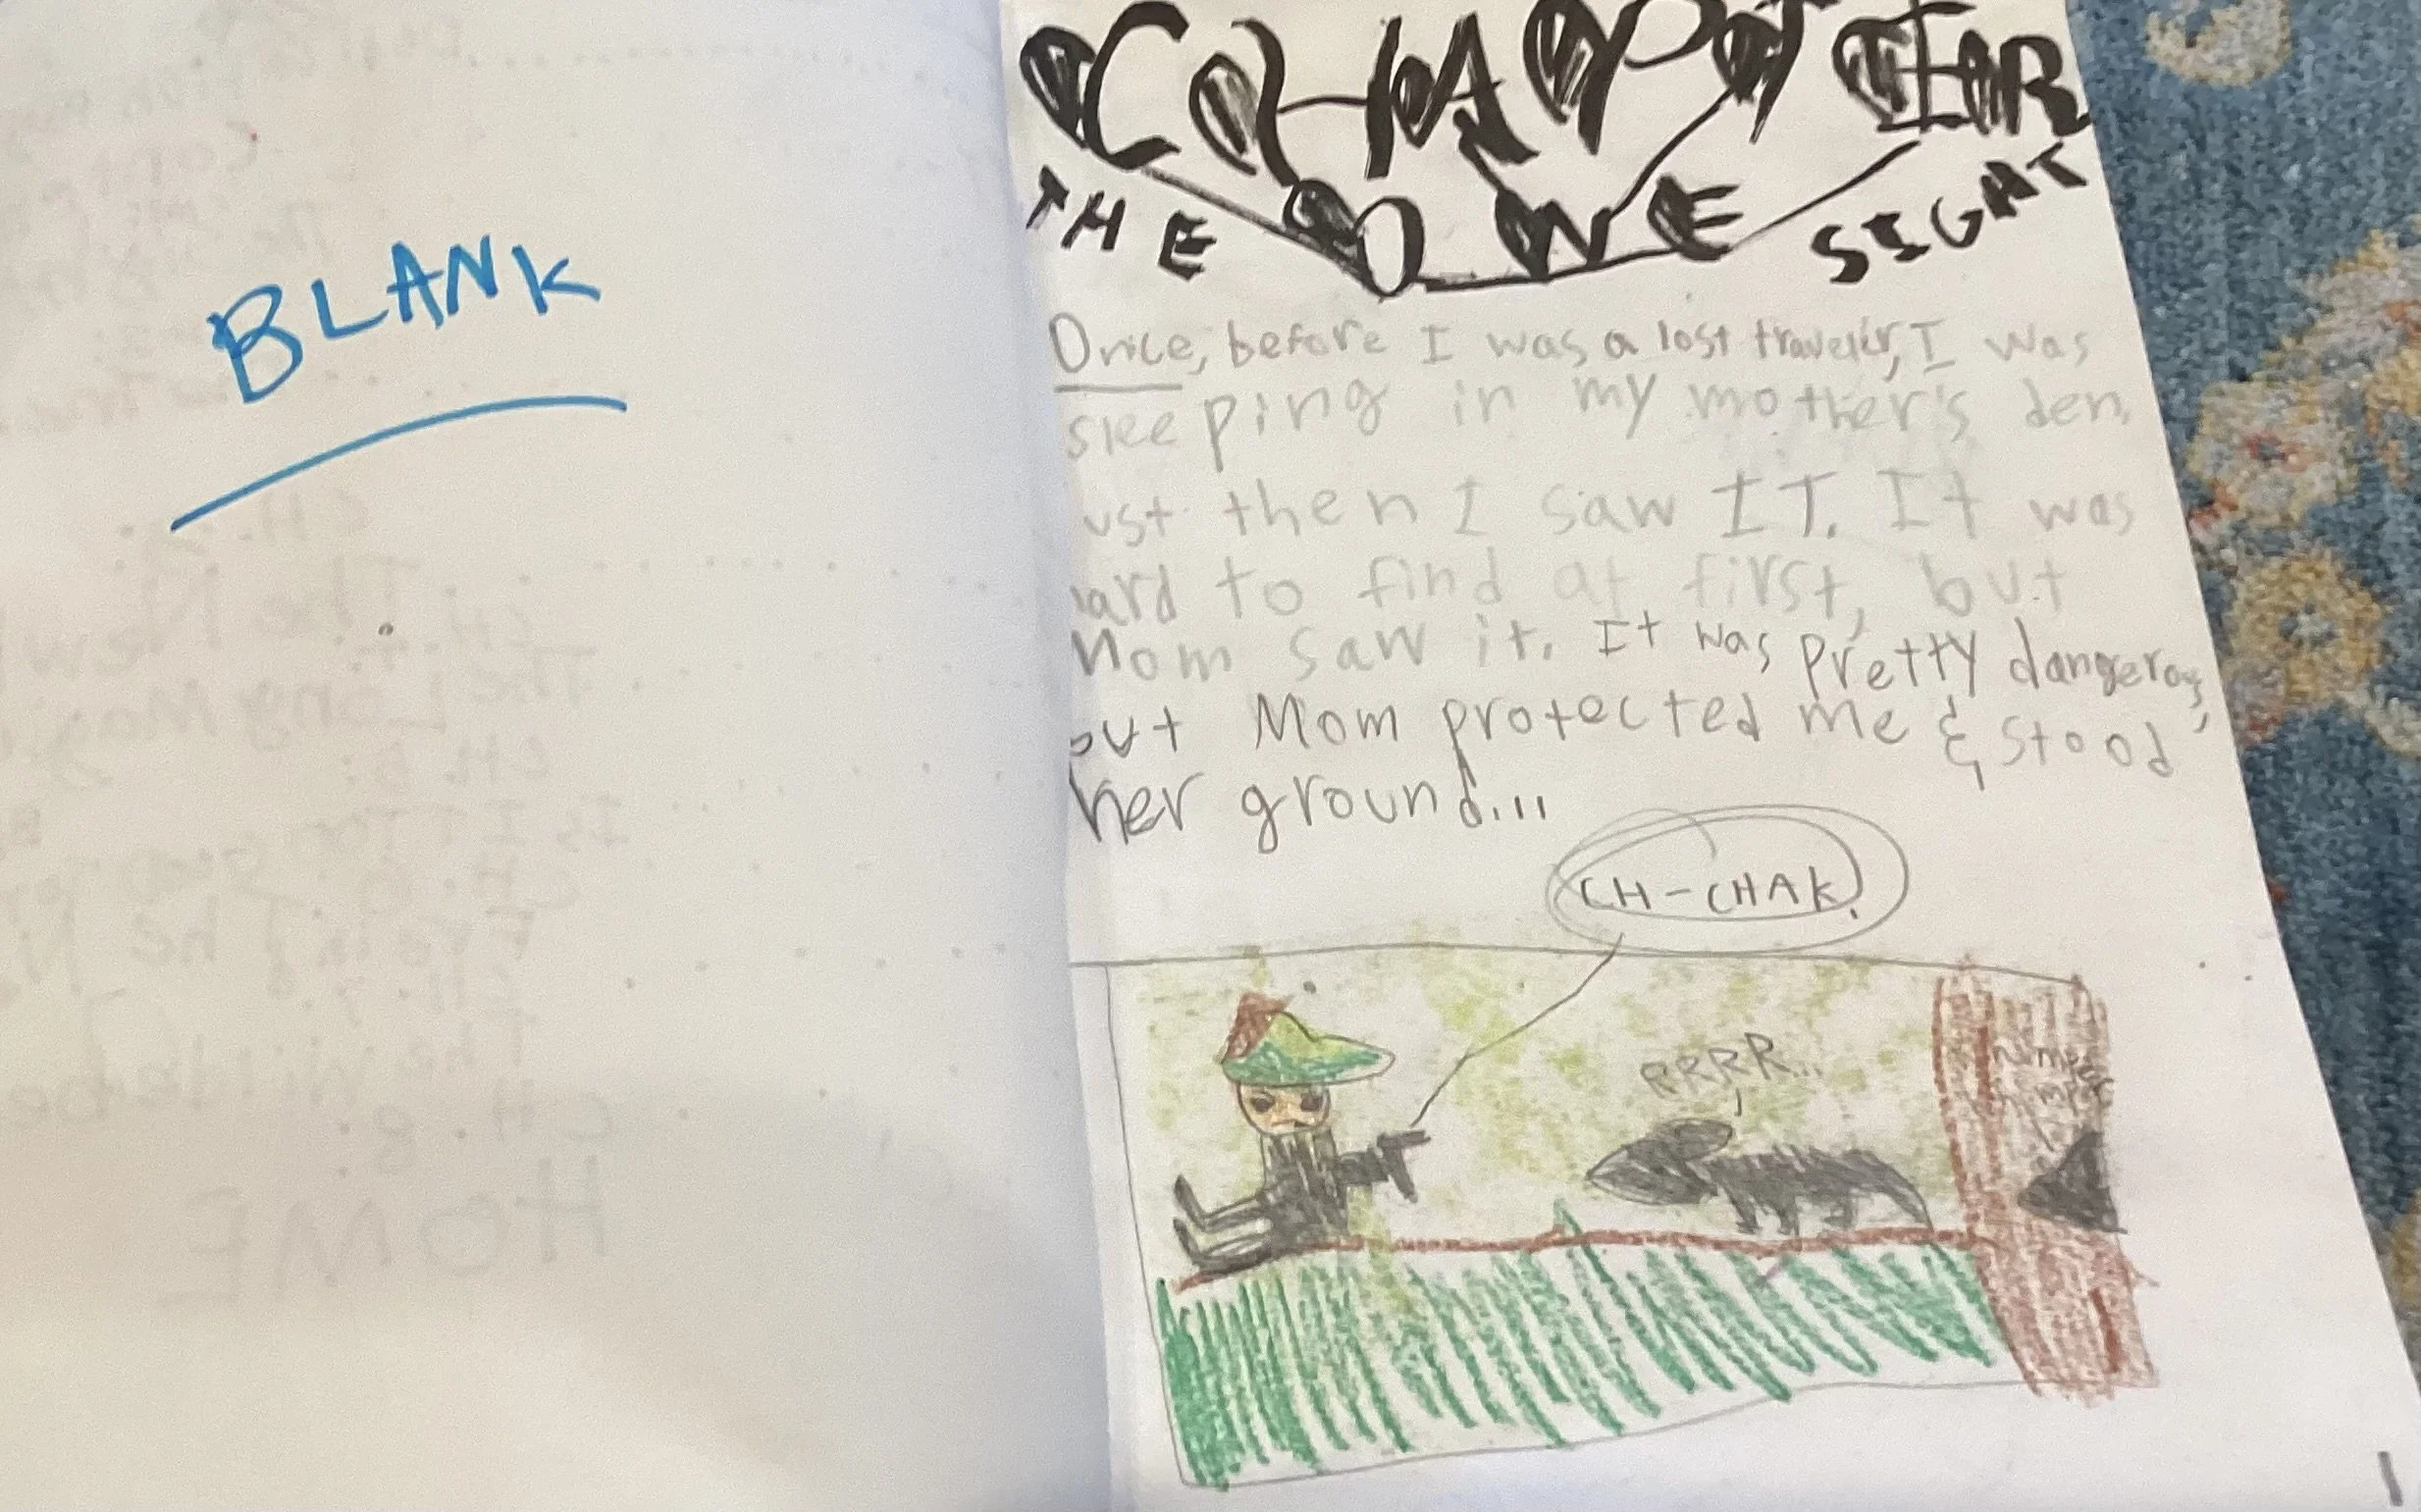 BLANK
CHAPTER
THE ONE SIGHT
Once, before I was a lost traveler, I was
sleeping in my mother's den.
ust then I saw IT. It was
ard to find at first, but
Mom saw it. It was pretty dangerous,
but Mom protected me & stood
her ground...
CH-CHAK!
RRRR...
whimper
whimper
1